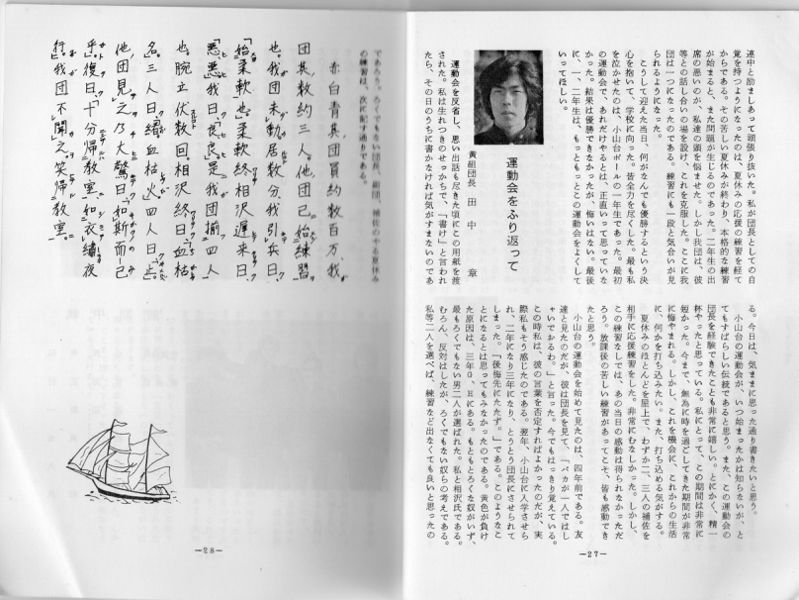 連中と励ましあって頑張り抜いた。私が団長としての自
覚を持つようになったのは、夏休みの応援の練習を経て
からである。その苦しい夏休みが終わり、本格的な練習
が始まると、また問題が生じるのであった。二年生の出
席の悪いのが、私達の頭を悩ませた。しかし我団は、彼
等との話し合いの場を設け、これを克服した。ここに我
団は一つになったのである。練習にも一段と気合いが見
られるようになった。
こうして迎えた当日、何がなんでも優勝するという決
心を抱いて、学校に向った。皆全力を尽くした。最も私
を泣かせたのは、小山台ボールの一年生であった。最初
の運動会で、あれだけやるとは、正直いって思っていな
かった。結果は優勝できなかったが、悔いはない。最後
に、一、二年生は、もっともっとこの運動会をよくして
いってほしい。
運動会をふり返って
黄組団長 田中 章
運動会を反省し、思い出話も尽きた頃にこの用紙を渡
された。私は生れつきのせっかちで、「書け」と言われ
たら、その日のうちに書かなければ気がすまないのであ
る。今日は、気ままに思った通り書きたいと思う。
小山台の運動会が、いつ始まったかは知らないが、と
てもすばらしい伝統であると思う。また、この運動会の
団長を経験できたことも非常に嬉しい。とにかく、精一
杯やったと思っている。私にとって、この期間は非常に
短かった。今まで、無為に時を過ごしてきた期間が非常
に悔やまれる。しかし、これを機会に、これからの生活
に、何かを打ち込みたい。また、打ち込める気がする。
夏休みのほとんどを屋上で、わずか二、三人の補佐を
相手に応援練習をした。非常にむなしかった。しかし、
この練習なしでは、あの当日の感動は得られなかっただ
ろう。放課後の苦しい練習があってこそ、皆も感動でき
たと思う。
小山台の運動会を始めて見たのは、四年前である。友
達と見たのだが、彼は団長を見て、「バカが一人ではし
ゃいでおるわ。」と言った。今でもはっきり覚えている。
この時私は、彼の言葉を否定すればよかったのだが、実
際私もそう感じたのである。翌年、小山台に入学させら
れ、二年になり三年になり、とうとう団長にさせられて
しまった。「後悔先にたたず。」である。このようなこ
とになるとは思ってもみなかったのである。黄色が負け
た原因は、三年G、Hにある。もともとろくな奴がいず、
最もろくでもない男二人が選ばれた。私と相沢氏である。
むろん、反対はしたが、ろくでもない奴らの考えである。
私等二人を選べば、練習など出なくても良いと思ったの
—27—
であろう。ろくでもない団長、副団、補佐のする夏休み
の練習は、次に記す通りである。
赤白青其団員約数百万、我
団其数約三人。他団已始練習
也。我団未動、居数分、我引兵日、
「始柔軟」也。柔軟終、相沢遅来日、
「悪悪」我日、「良良」是我団揃四人
也。腕立伏数回、相沢終日、「血枯」
名三人日、「繡血枯火」四人日、「止」
他団見之乃大驚日、「如斯而已
乎」復日、「十分帰教室、如衣繡夜
行」我団不聞之笑、帰教室。
—28—